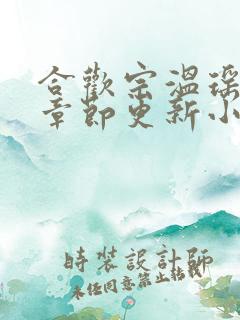 合歡宗溫瑤
章節更新小
時裝設計師
未经同意禁止转载